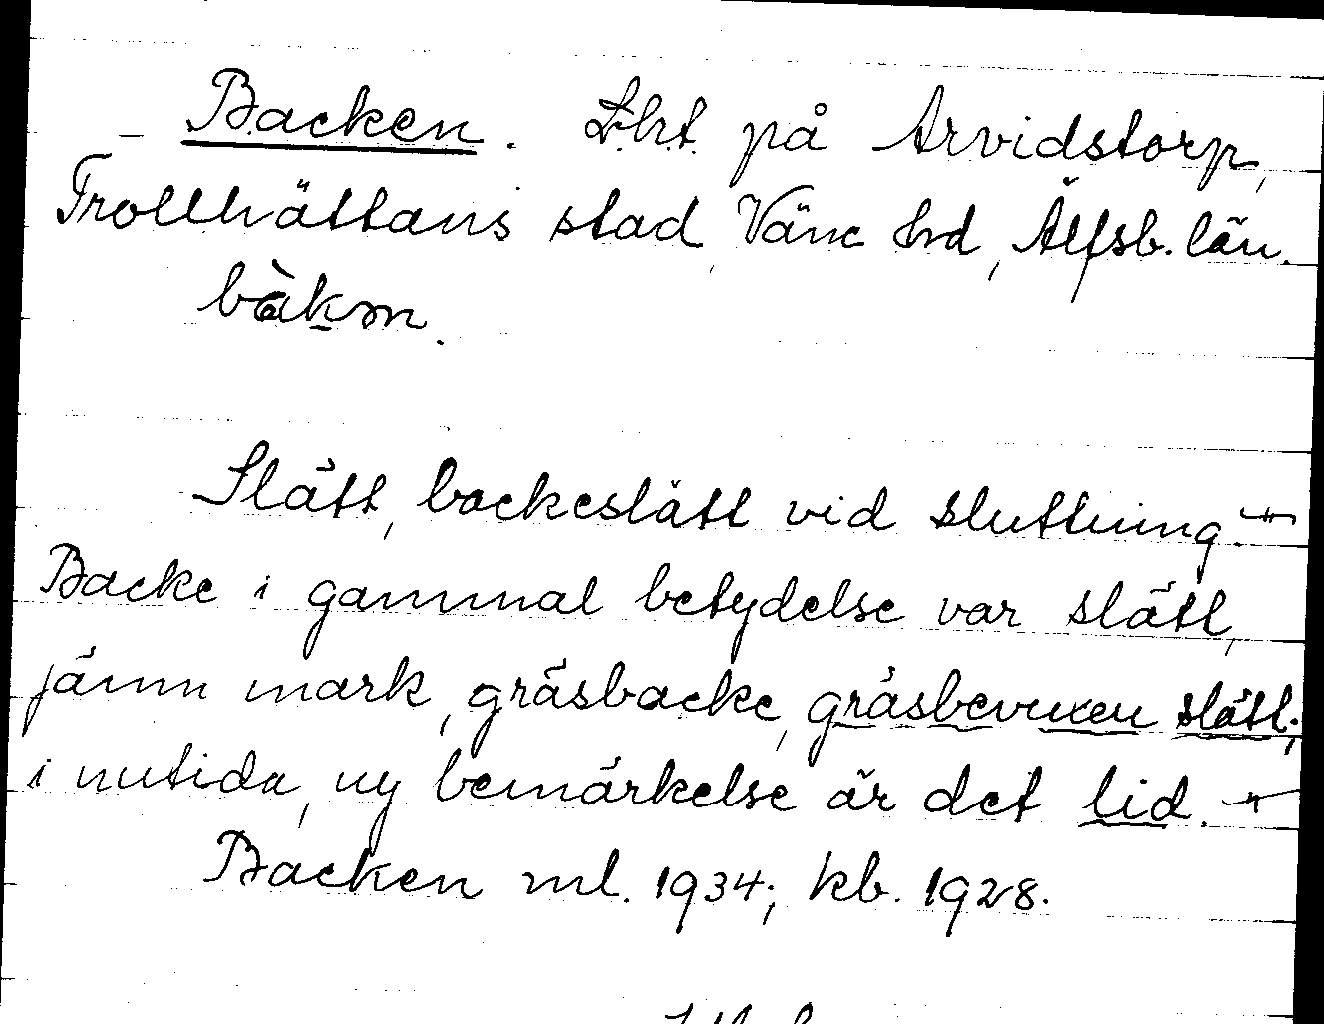 – Backen. Lht på Arvidstorp,
Trollhättans stad, Väne hd, Älfsb. län.
bàkən.
Slätt, backeslätt vid sluttning.
Backe i gammal betydelse var slätt,
jämn mark, gräsbacke, gräsbevuxen slätt;
i nutida, ny bemärkelse är det lid.
Backen ml. 1934; kb. 1928.